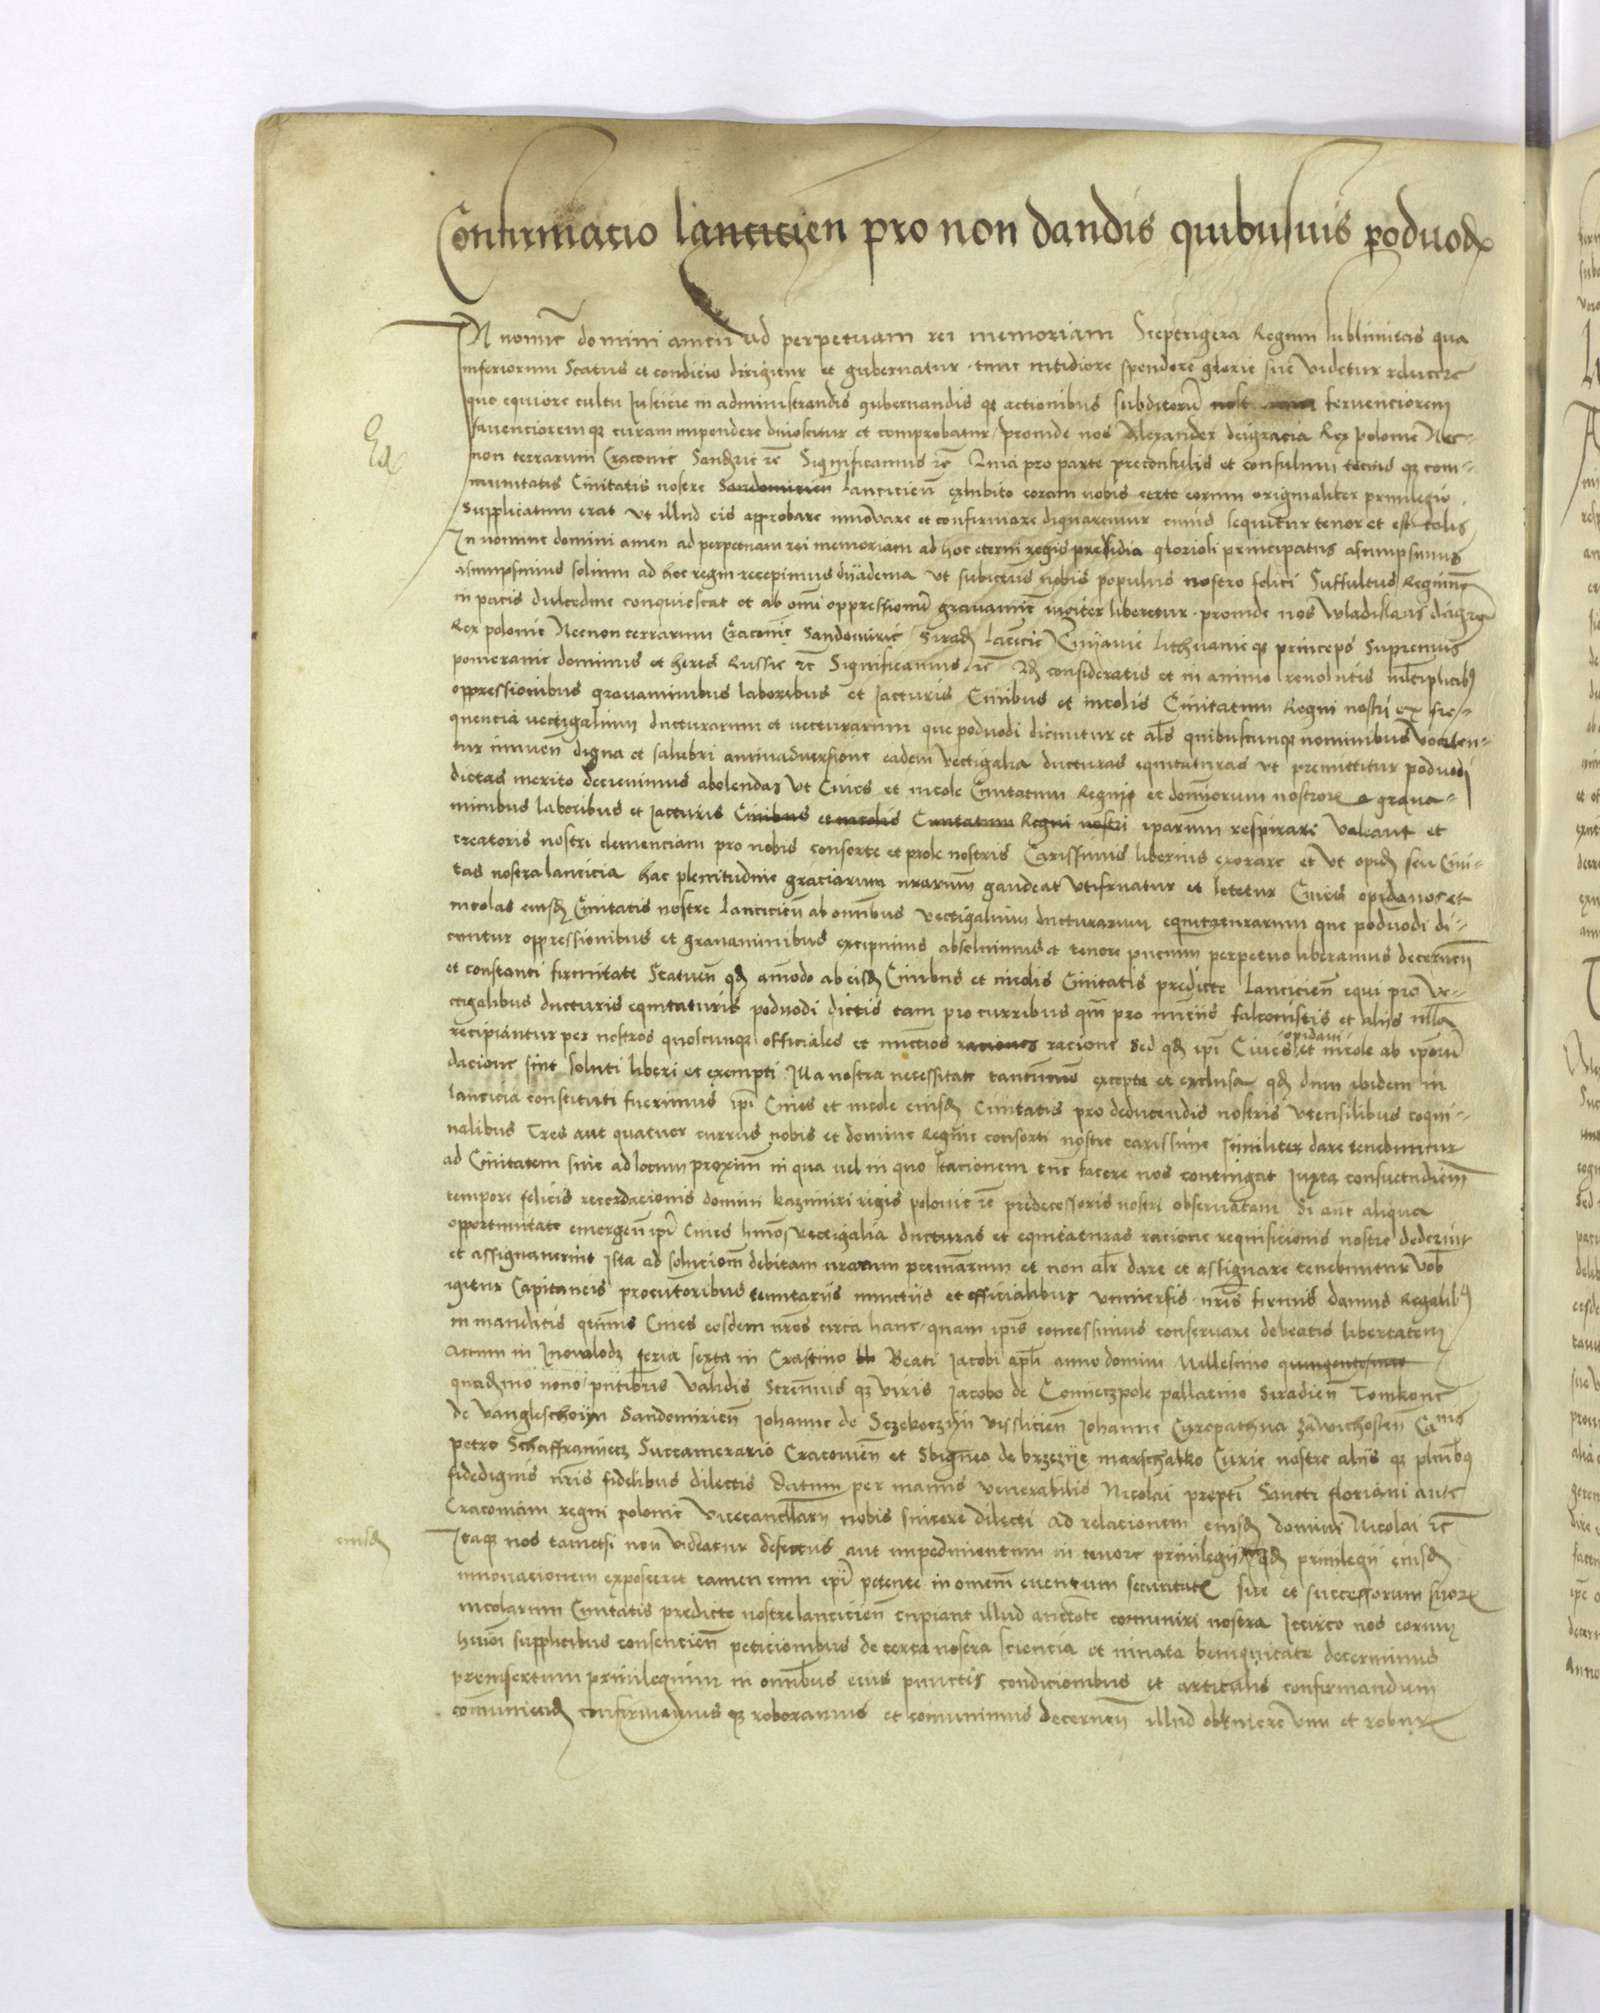 Confirmacio lancicien pro non dandis quibusuis poduod
IN nomine domini amen ad perpetuam rei memoriam Sceptrigera Regum sublimitas qua
inferiorum Status et condicio dirigitur et gubernatur tunc nitidiore spendore glorie sue videtur relucere
quo equiore cultu Justicie in administrandis gubernandis qz actionibus subditorum feruenciorem
fauenciorem qz curam impendere dinoscitur et comprobatur proinde nos Alexander deigracia Rex polonie Nec-
non terrarum Cracouie Sandmrie etc Significamus etc Quia pro parte preconsulis et consulum tocius qz com-
munitatis Ciuitatis nostre Sandomirien lancicien exhibito coram nobis certo eorum originaliter priuilegio
Supplicatum erat vt illud eis approbare innovare et confirmare dignaremur cuius sequitur tenor et est talis
In nomine domini amen ad perpetuam rei memoriam ad hoc eterni regis presidia gloriosi principatus asumpsimus
asumpsimus solium ad hoc regni recepimus diiadema vt subiectus nobis populus nostro felici Suffultus Regimine
in pacis dulcedine conquiescat et ab omni oppressionum grauamine iugiter liberetur proinde nos wladislaus deigra
Rex polonie Necnon terrarum Cracouie Sandomirie Sirad lancicie Cuijauie lithuanie qz princeps Supremus
pomeranie dominus et heres Russie etc Significamus etc Qd consideratis et in animo reuolutis multiplicibus
oppressionibus grauaminibus laboribus et Jacturis Ciuibus et incolis Ciuitatum Regni nostri ex fre-
quencia vectigalium ducturarum et vecturarum que poduodi dicuntur et als quibuscunqz nominibus vociten-
tur inuuen digna et salubri animaduersione eadem vectigalia ducturas equitaturas vt premittitur poduodi
dictas merito decreuimus abolendas vt Ciues et incole Ciuitatum Regnijo et dominorum nostrorum a graua-
minibus laboribus et Jacturis Ciuibus et incolis Ciuitatum Regni nostri iparum respirari valeant et
creatoris nostri clemenciam pro nobis consorte et prole nostris Carissimis liberius exorare et vt opid seu Ciui-
tas nostra lancicia hac plenitudine graciarum nrarum gaudeat vtifruatur et letetur Ciues opidanos et
incolas eiusd Ciuitatis nostre lancicien ab omnibus vectigalium ducturarum equitaturarum que poduodi di-
cuntur oppressionibus et grauaminibus excipimus absoluimus et tenore pncium perpetuo liberamus decernen
et constanti firmitate Statuen qd amodo ab eisd Ciuibus et incolis Ciuitatis predicte lancicien equi pro ve-
ctigalibus ducturis equitaturis poduodi dictis tam pro curribus qm pro nunciis falconistis et aliis nulla
recipiantur per nostros quoscunqz officiales et nunctios raciones racione Sed qd ipi Ciues opidani et incole ab iporum
dacione sint soluti liberi et exempti Illa nostra necessitate tantummodo excepta et exclusa qd dum ibidem in
lancicia constituti fuerimus ipi Ciues et incole eiusd Ciuitatis pro deducendis nostris vtensilibus coqui-
nalibus Tres aut quatuor currus nobis et domine Regine consorti nostre carissime similiter dare tenebuntur
ad Ciuitatem siue ad locum proximum in qua vel in quo stacionem tunc facere nos contingat Juxta consuetudinem
tempore felicis recordacionis domini kazimiri regis polonie etc predecessoris nostri obseruatam Si aut aliqua
opportunitate emergen ipi Ciues huiusmodi vectigalia ducturas et equitaturas racione requisicionis nostre dederint
et assignauerint ista ad solucionem debitam nrarum pecuniarum et non alr dare et assignare tenebuntur vob
igitur Capitaneis procuratoribus tenutariis nunctiis et officialibus vniuersis nris firmis damus Regalibus
in mandatis quatenus Ciues eosdem nros circa hanc quam ipis concessimus conseruare debeatis libertatem
Actum in Inowlodz feria sexta in Crastino Beati Jacobi apli anno domini Millesimo quingentesimo
quadringentesimo nono pntibus validis Strennuis qz viris Jacobo de Conneczpole pallatino Siradien Tomkone
de vangleschoijn Sandomirien Johanne de Sczekoczijn vislicien Johanne Cyropathva zawichosten Canis
petro Schaffranijecz Succamerario Cracouien et Sbigneo de brzezije marschalko Curie nostre aliis qz plurimus
fidedignis nris fidelibus dilectis Datum per manus venerabilis Nicolai prepti Sancti floriani ante
Cracouiam regni polonie vicecancellarij nobis sincere dilecti ad relacionem eiusd domini Nicolai etc
eiusd
Itaqz nos tametsi non videatur defectus aut impedimentum in tenore priuilegii qd priuilegii eiusd
innouacionem exposceret tamen cum ipi petente in omnem euentum securitate sue et successorum suorum
incolarum Ciuitatis predicte nostre lancicien cupiant illud auctoritate comuniri nostra Jccirco nos eorum
huiusmodi supplicibus consencien peticionibus de certa nostra sciencia et innata benignitate decreuimus
preinsertum priuilegium in omnibus eius punctis condicionibus et articulis confirmandum
comuniend confirmamus qz roboramus et comunimus decernen illud obtinere vim et robur